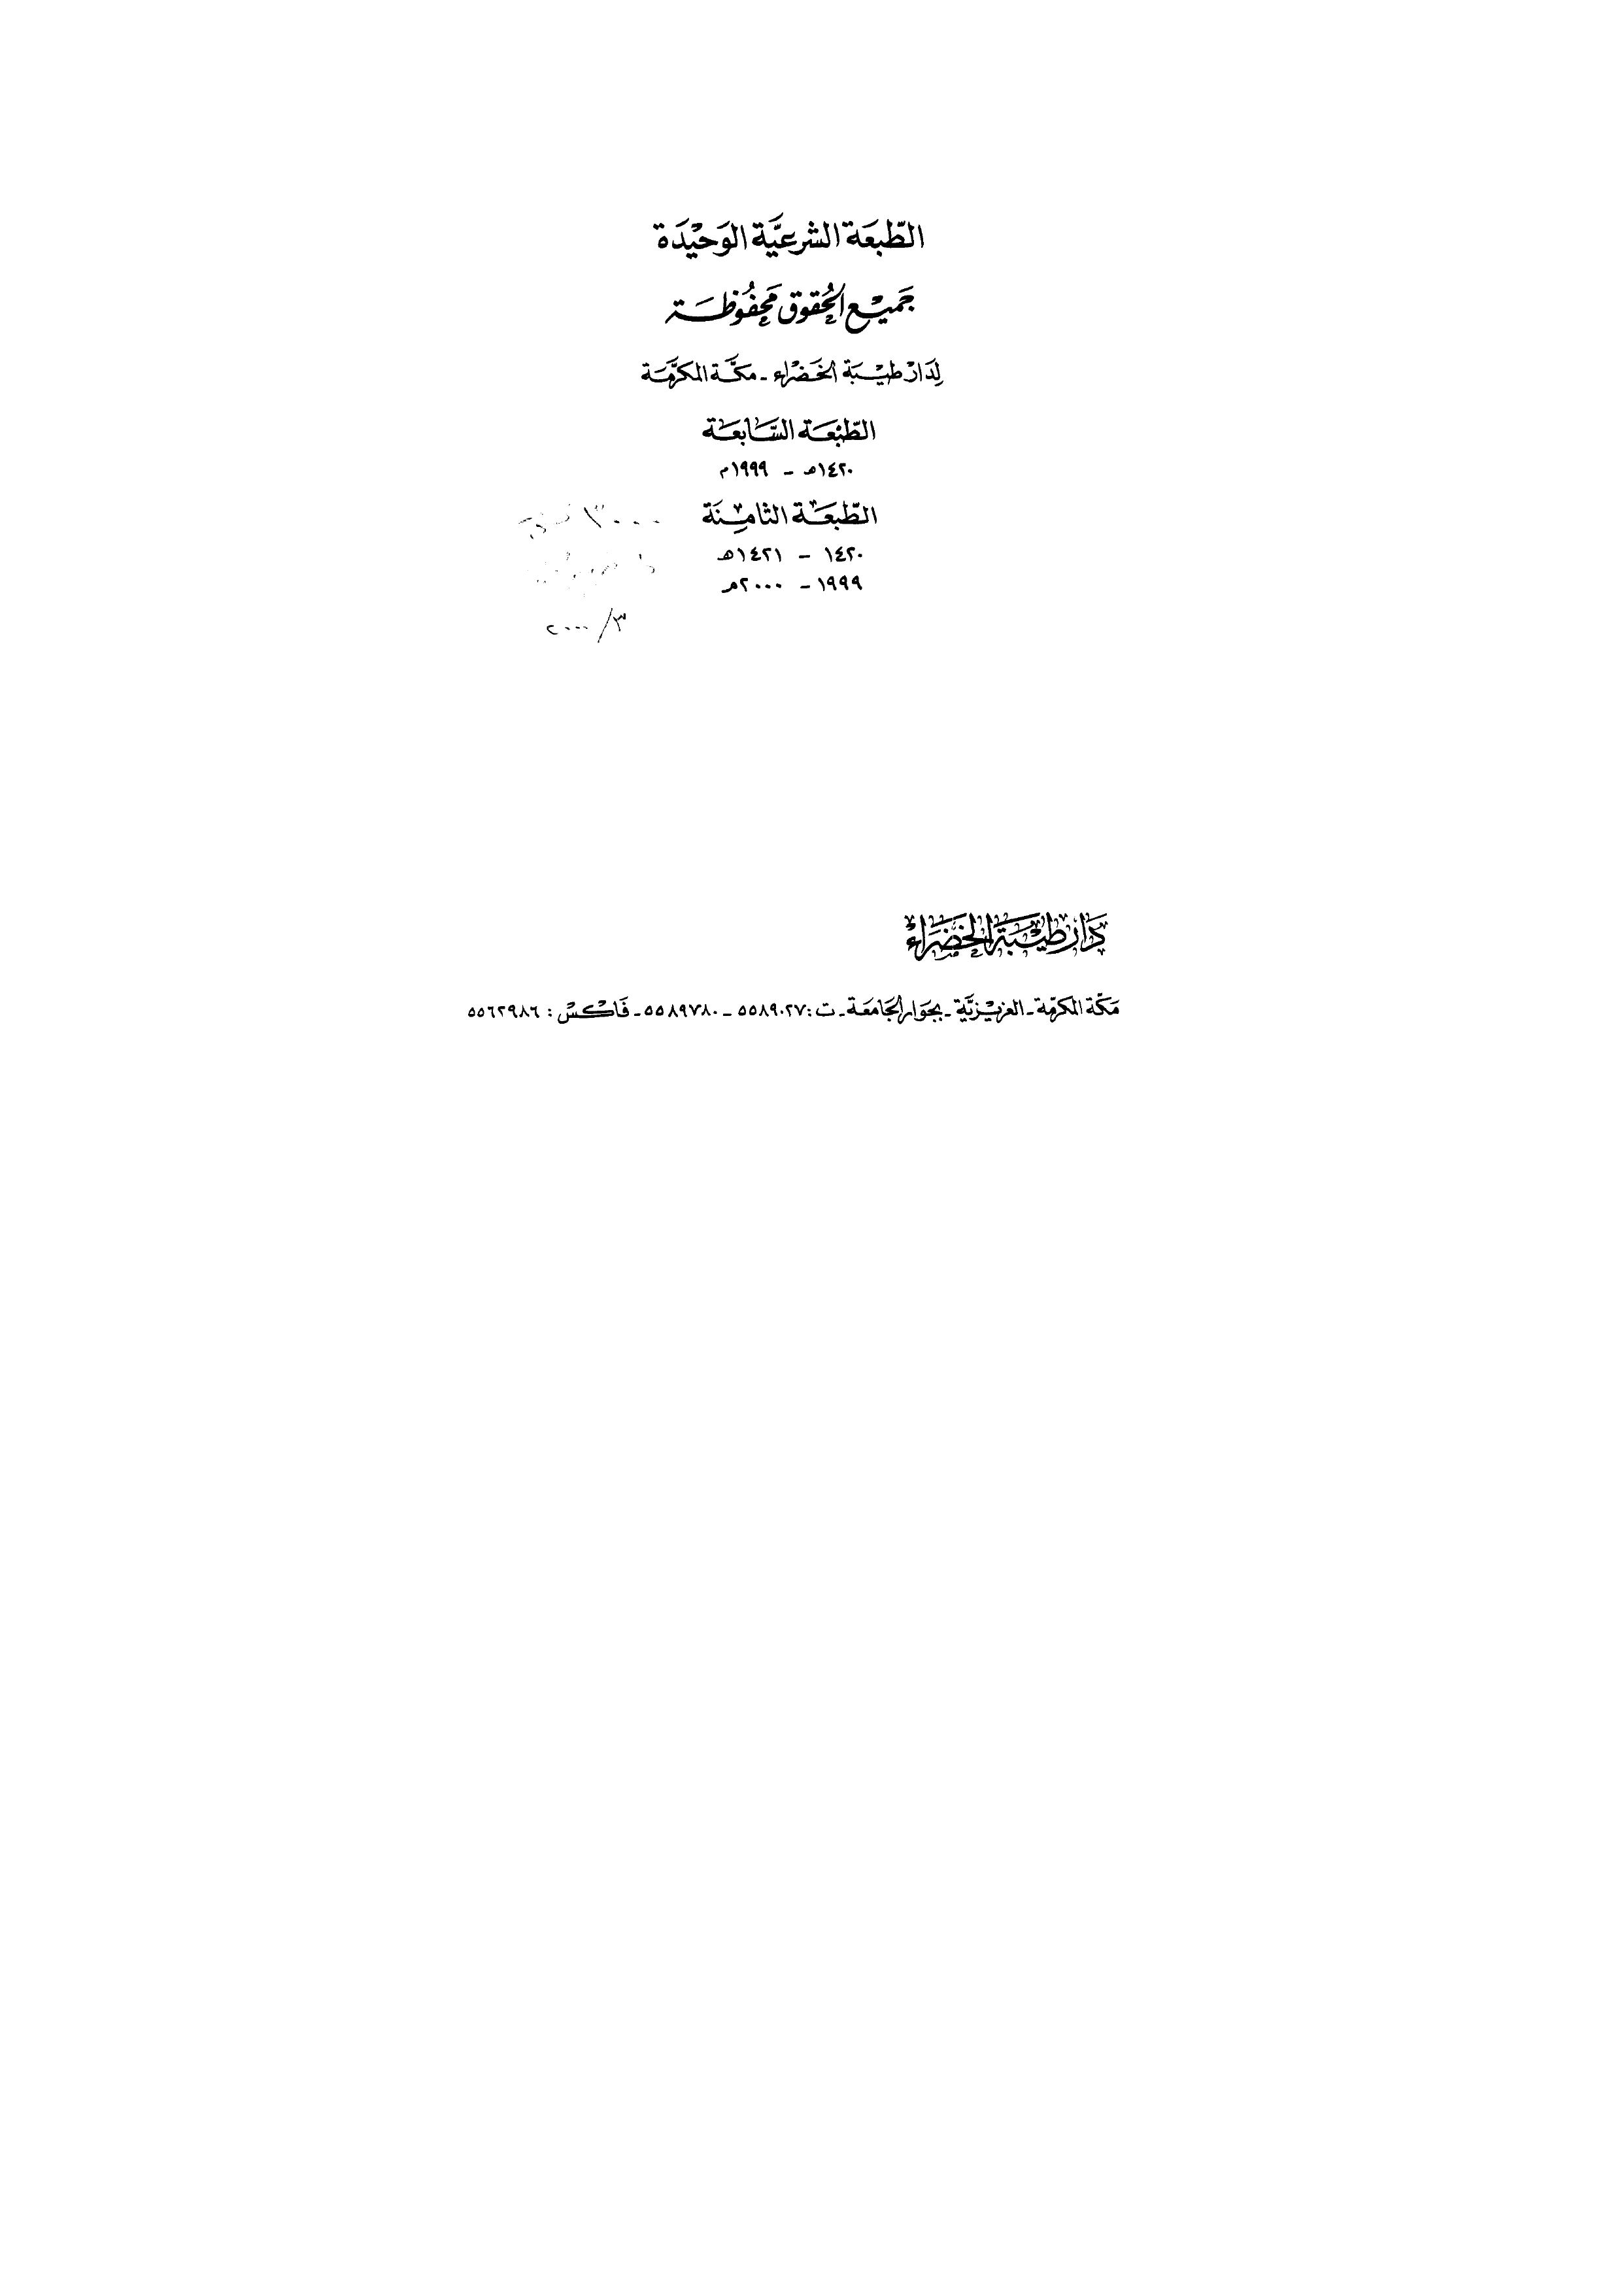 الطّبعَة الشرعيَّة الوَحيْدَة
جَميْع الحُقوق مَحفُوظَة
لِدَار طيْبَة الخَضْراء ـ مَكَّة المكرَّمَة
الطّبْعَة السَّابعَة
١٤٢٠هـ - ١٩٩٩م
الطّبعَة الثامِنَة
٣٠٠٠
١٤٢٠ - ١٤٢١هـ
١٩٩٩ - ٢٠٠٠مـ
٣/٢٠٠٠
دَار طيْبَة الخَضْرَاءْ
مَكّة المكرّمة ـ العزيْزيَّة ـ بجوَار الجَامعَة ـ ت : ٥٥٨٩٠٢٧ ـ ٥٥٨٩٧٨٠ ـ فَاكْسْ : ٥٥٦٢٩٨٦